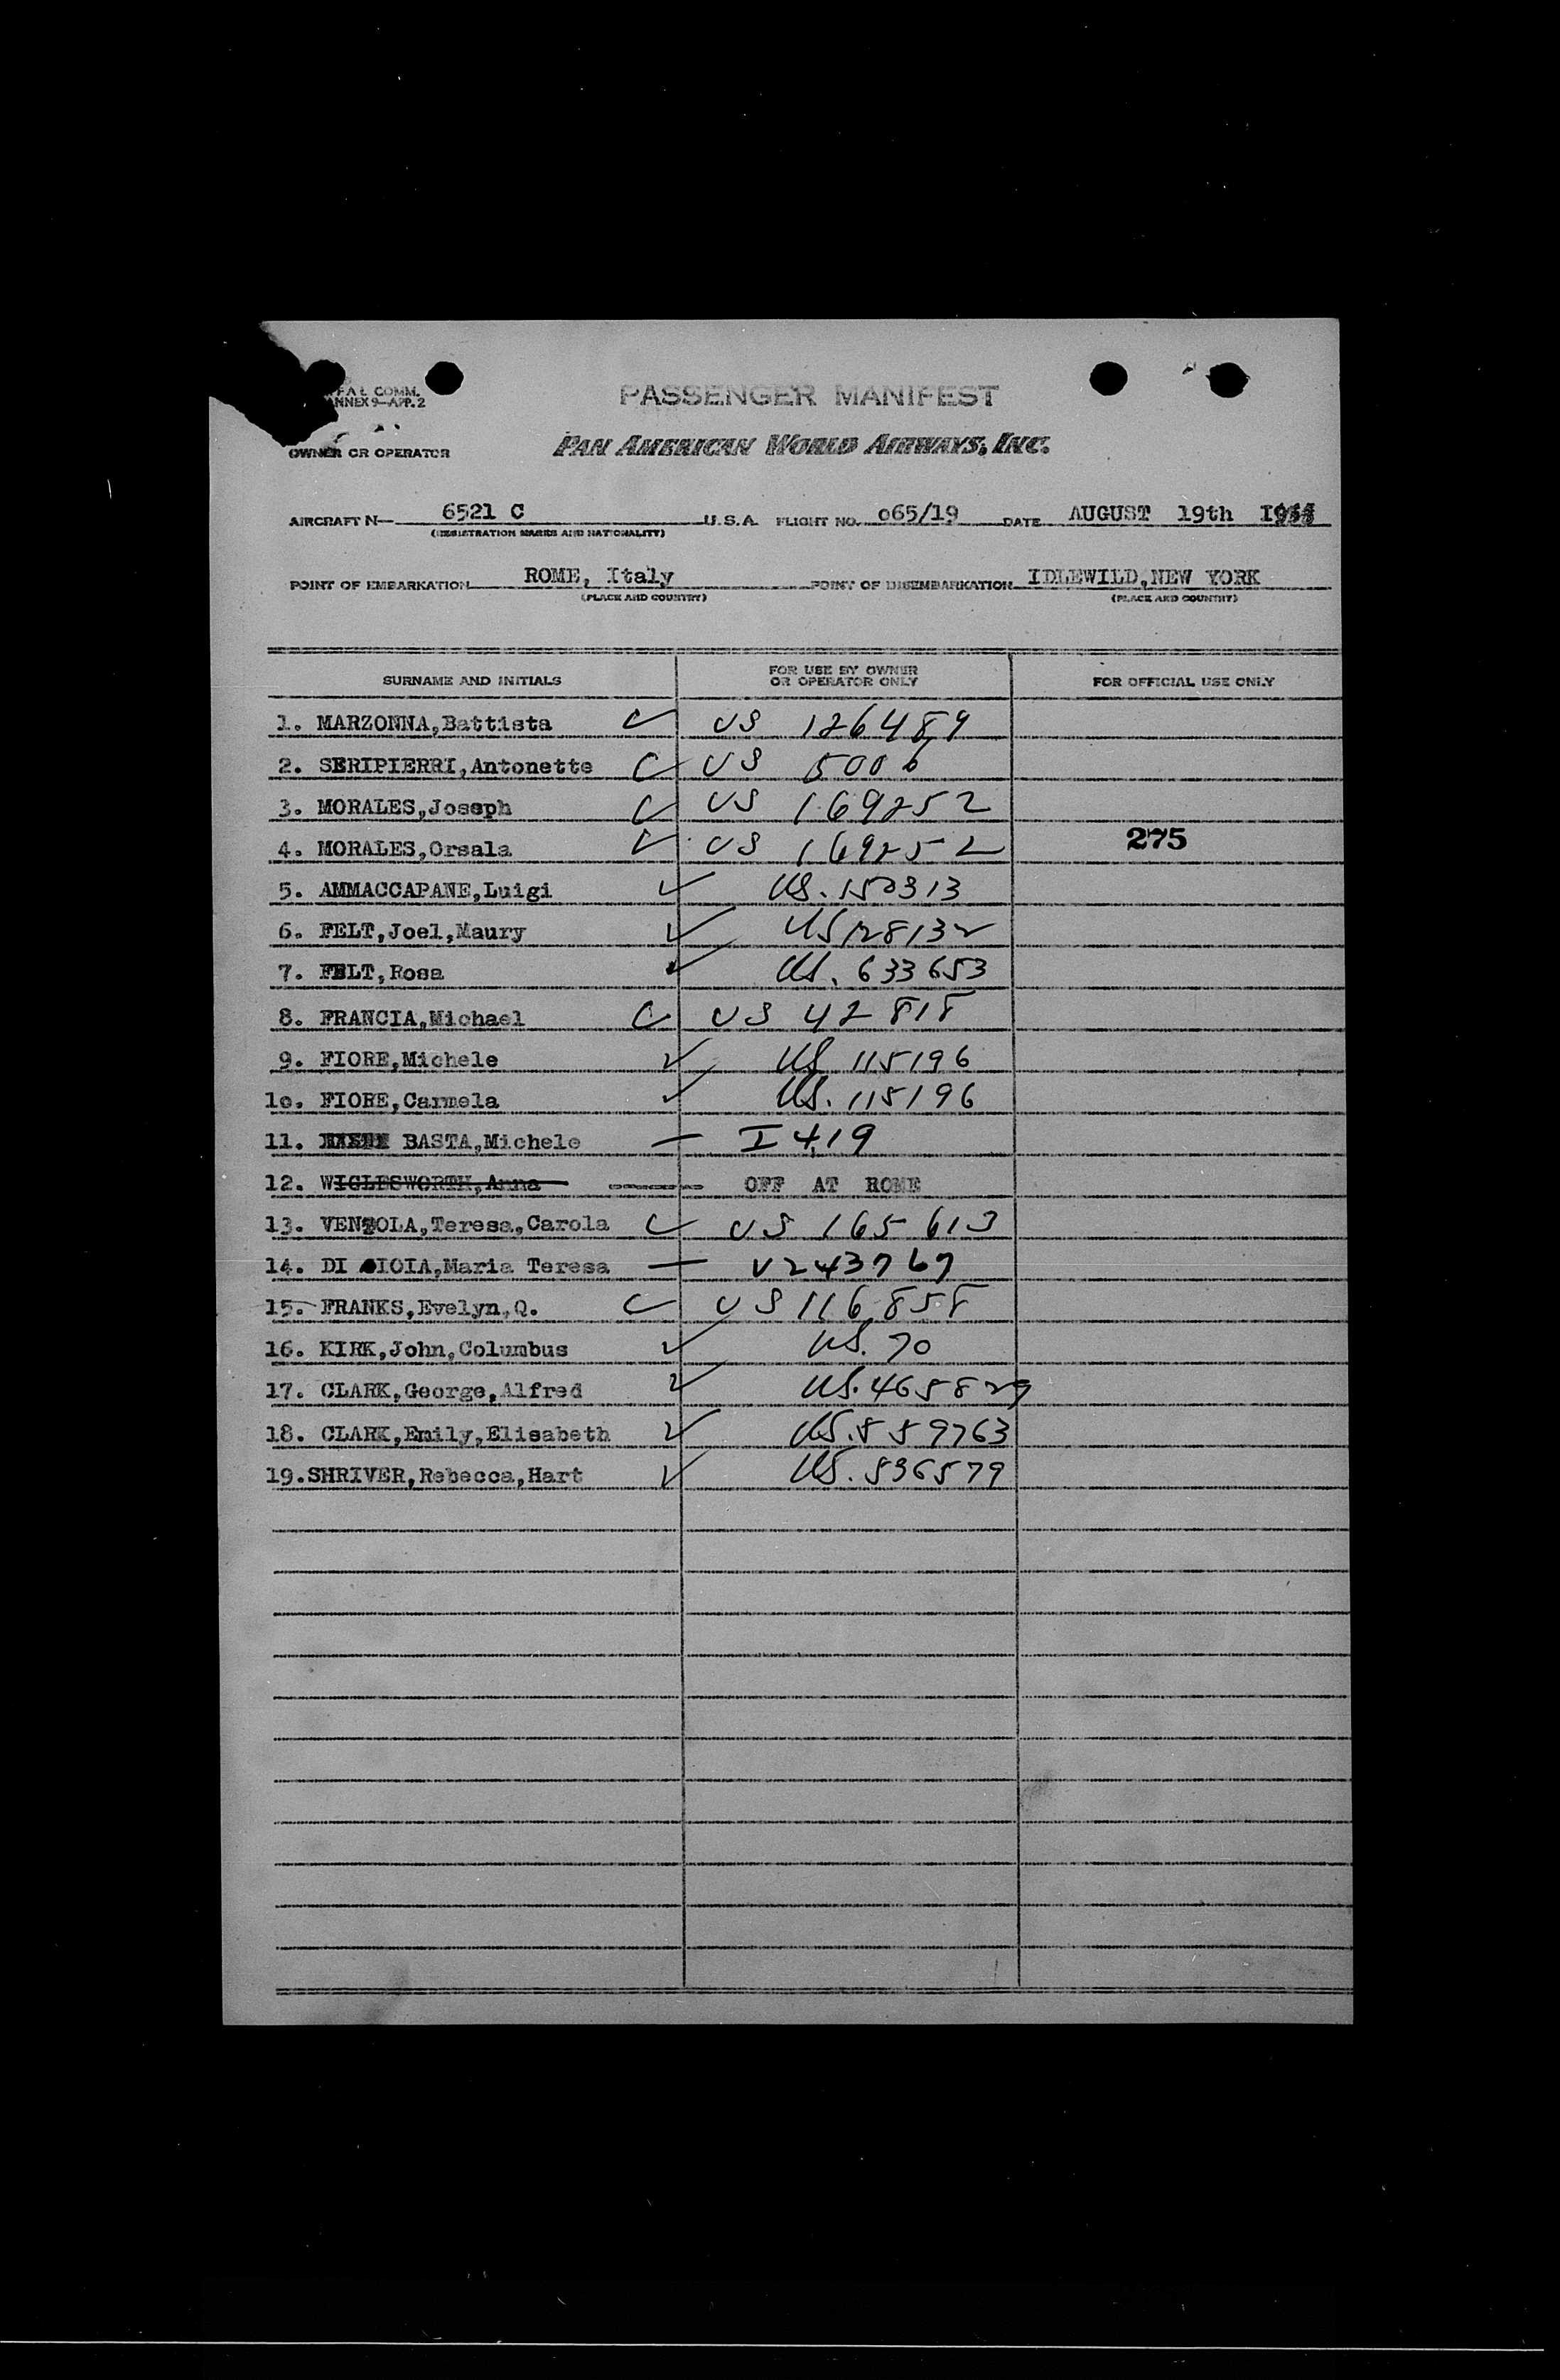 F A L COMM.
ANNEX 9—APP. 2
PASSENGER MANIFEST
OWNER OR OPERATOR PAN AMERICAN WORLD AIRWAYS, INC.
AIRCRAFT N— 6521 C U.S.A. FLIGHT NO. o65/19 DATE AUGUST 19th
(REGISTRATION MARKS AND NATIONALITY)
POINT OF EMBARKATION ROME, Italy POINT OF DISEMBARKATION IDLEWILD,NEW YORK
(PLACE AND COUNTRY) (PLACE AND COUNTRY)
SURNAME AND INITIALS FOR USE BY OWNER OR OPERATOR ONLY FOR OFFICIAL USE ONLY
1. MARZONNA,Battista US 126489
2. SERIPIERRI,Antonette US 5006
3. MORALES,Joseph US 169252
4. MORALES,Orsala US 169252 275
5. AMMACCAPANE,Luigi US. 150313
6. FELT,Joel,Maury US 128132
7. FELT,Rosa US. 633653
8. FRANCIA,Michael US 42818
9. FIORE,Michele US 115196
1o. FIORE,Carmela US. 115196
11. BASTA,Michele — I 419
12. WIGLESWORTH,Anna OFF AT ROME
13. VENTOLA,Teresa,Carola US 165613
14. DI GIOIA,Maria Teresa — V243767
15. FRANKS,Evelyn,Q. US 116858
16. KIRK,John,Columbus US. 70
17. CLARK,George,Alfred US. 465829
18. CLARK,Emily,Elisabeth US. 559763
19.SHRIVER,Rebecca,Hart US. 536579